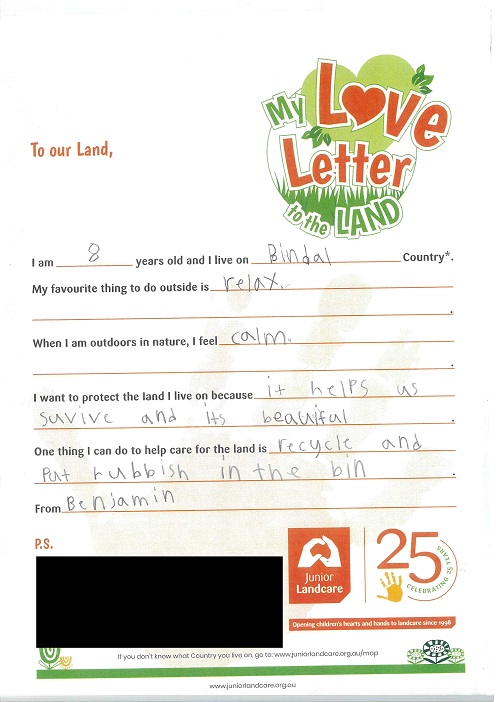 My Love
Letter
to the LAND
To our Land,
I am 8 years old and I live on Bindal Country*.
My favourite thing to do outside is relax.
.
When I am outdoors in nature, I feel calm.
.
I want to protect the land I live on because it helps us
suvive and its beauiful .
One thing I can do to help care for the land is recycle and
Put rubbish in the bin .
From Benjamin
P.S.
Junior
Landcare
25
CELEBRATING 25 YEARS
Opening children's hearts and hands to landcare since 1998
If you don't know what Country you live on, go to: www.juniorlandcare.org.au/map
www.juniorlandcare.org.au